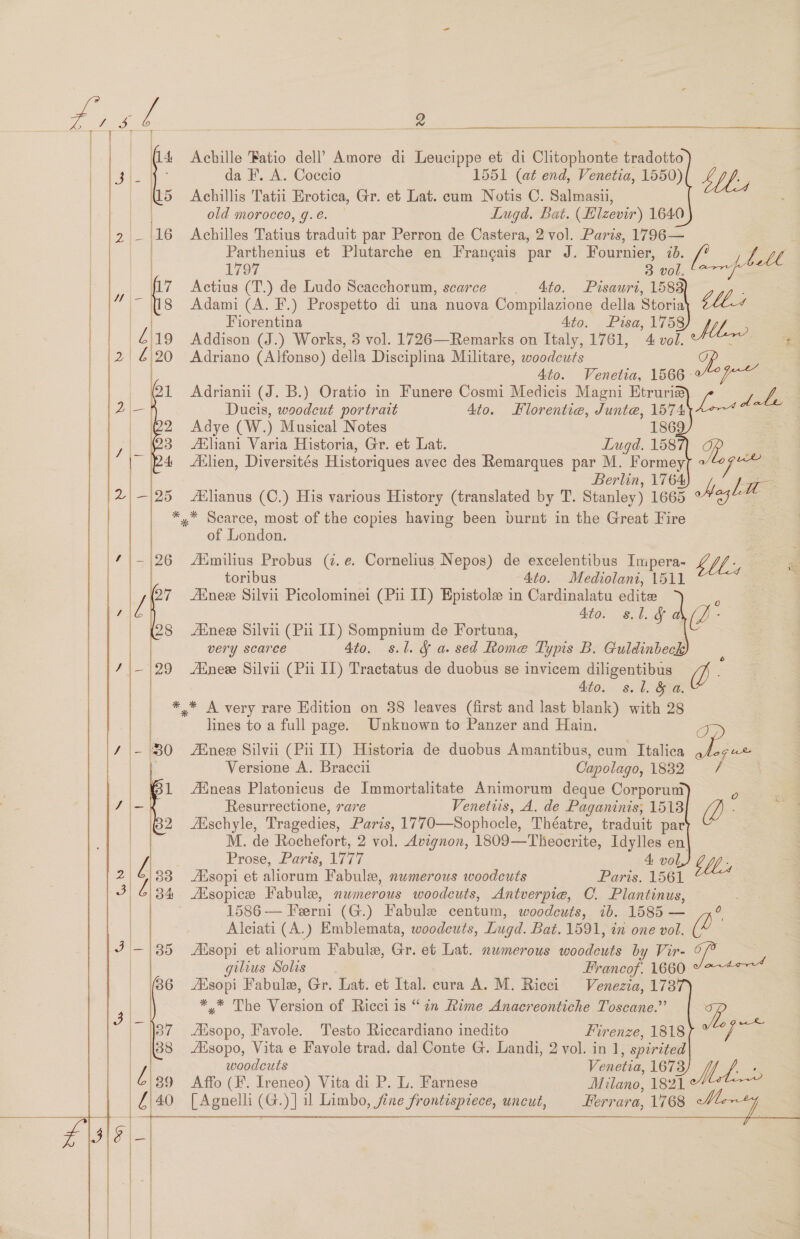 £ 1 5 6
2
14 Achille Tatio dell’ Amore di Leucippe et di Clitophonte tradotto
3 - da F. A. Coccio 1551 (at end, Venetia, 1550) Ellis
15 Achillis Tatii Erotica, Gr. et Lat. cum Notis C. Salmasii,
old morocco, g. e. Lugd. Bat. (Elzevir) 1640
2 - 16 Achilles Tatius traduit par Perron de Castera, 2 vol. Paris, 1796—
Parthenius et Plutarche en Français par J. Fournier, ib.
1797 3 vol. Campbell
17 Actius (T.) de Ludo Scacchorum, scarce 4to. Pisauri, 1583
11 - 18 Adami (A. F.) Prospetto di una nuova Compilazione della Storia Ellis
Fiorentina 4to. Pisa, 1758
6 19 Addison (J.) Works, 3 vol. 1726—Remarks on Italy, 1761, 4 vol. Allen
2 6 20 Adriano (Alfonso) della Disciplina Militare, woodcuts
4to. Venetia, 1566 Hogue
21 Adrianii (J. B.) Oratio in Funere Cosmi Medicis Magni Etruriæ
2 - Ducis, woodcut portrait 4to. Florentiæ, Juntæ, 1574 Lonsdale
22 Adye (W.) Musical Notes 1869
23 Æliani Varia Historia, Gr. et Lat. Lugd. 1587
1 - 24 Ælien, Diversités Historiques avec des Remarques par M. Formey Hogue
Berlin, 1764
2 - 25 Ælianus (C.) His various History (translated by T. Stanley) 1665 Hazlitt
*⁎* Scarce, most of the copies having been burnt in the Great Fire
of London.
1 - 26 Æmilius Probus (i. e. Cornelius Nepos) de excelentibus Impera-
toribus 4to. Mediolani, 1511 Ellis
27 Æneæ Silvii Picolominei (Pii II) Epistolæ in Cardinalatu editæ
1 6 4to. s. l. & a.
28 Æneæ Silvii (Pii II) Sompnium de Fortuna,
very scarce 4to. s. l. & a. sed Romæ Typis B. Guldinbeck
1 - 29 Æneæ Silvii (Pii II) Tractatus de duobus se invicem diligentibus
4to. s. l. & a.
*⁎* A very rare Edition on 38 leaves (first and last blank) with 28
lines to a full page. Unknown to Panzer and Hain.
1 - 30 Æneæ Silvii (Pii II) Historia de duobus Amantibus, cum Italica
Versione A. Braccii Capolago, 1832 Hogue
31 Æneas Platonicus de Immortalitate Animorum deque Corporum
1 - Resurrectione, rare Venetiis, A. de Paganinis, 1513
32 Æschyle, Tragedies, Paris, 1770—Sophocle, Théatre, traduit par
M. de Rochefort, 2 vol. Avignon, 1809—Theocrite, Idylles en
Prose, Paris, 1777 4 vol.
2 6 33 Æsopi et aliorum Fabulæ, numerous woodcuts Paris. 1561 Ellis
3 6 34 Æsopicæ Fabulæ, numerous woodcuts, Antverpiæ, C. Plantinus,
1586—Fæerni (G.) Fabulæ centum, woodcuts, ib. 1585 —
Alciati (A.) Emblemata, woodcuts, Lugd. Bat. 1591, in one vol.
3 - 35 Æsopi et aliorum Fabulæ, Gr. et Lat. numerous woodcuts by Vir-
gilius Solis Francof. 1660
36 Æsopi Fabulæ, Gr. Lat. et Ital. cura A. M. Ricci Venezia, 1737
*⁎* The Version of Ricci is “in Rime Anacreontiche Toscane.”
3 - 37 Æsopo, Favole. Testo Riccardiano inedito Firenze, 1818 Hogue
38 Æsopo, Vita e Favole trad. dal Conte G. Landi, 2 vol. in 1, spirited
woodcuts Venetia, 1673
6 39 Affo (F. Ireneo) Vita di P. L. Farnese Milano, 1821 Molini
6 40 [Agnelli (G.)] il Limbo, fine frontispiece, uncut, Ferrara, 1768 Money
£ 3 8 -